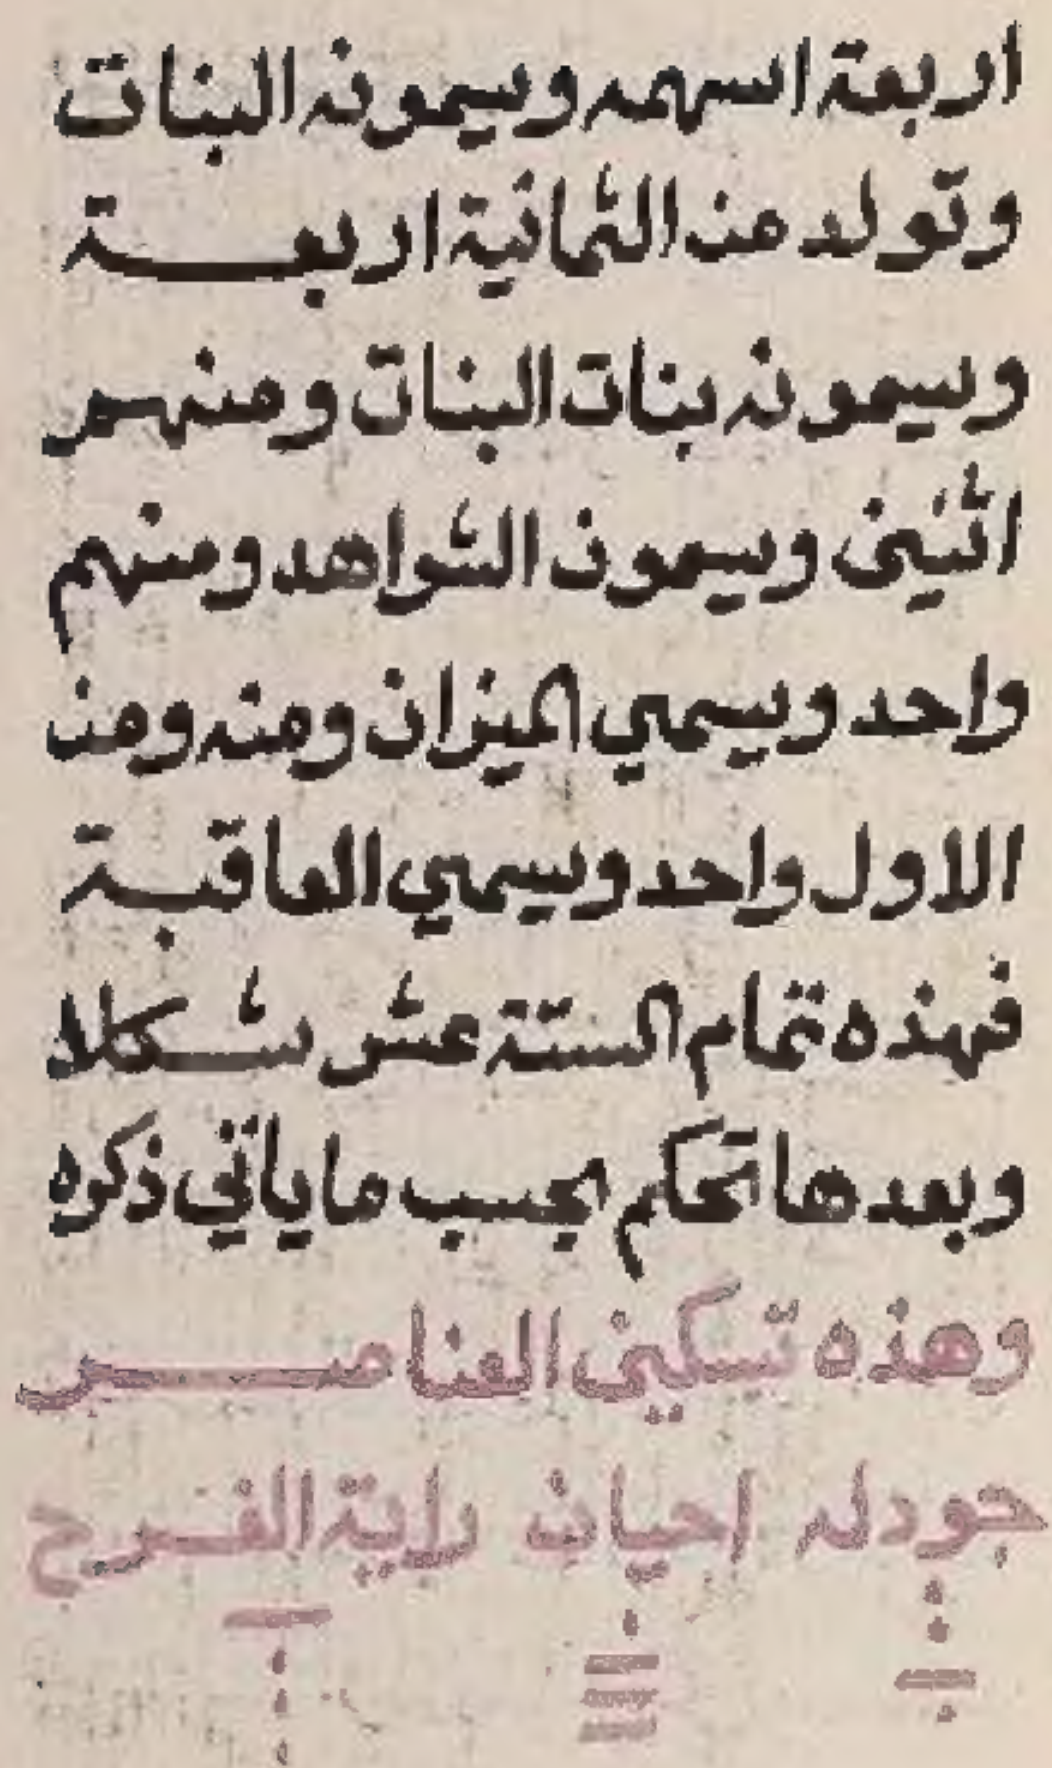 اربعة اسهمه ويسمونه البنات
وتولد من الثمانية اربعة
ويسمونه بنات البنات ومنهم
اثنين ويسمون الشواهد ومنهم
واحد ويسمي الميزان ومنه ومن
الاول واحد ويسمي العاقبة
فهذه تمام الستة عشر شكلا
وبعدها تحكم بحسب ما ياتي ذكره
وهذه تسكين العناصر
جودله احيان راية الفرح